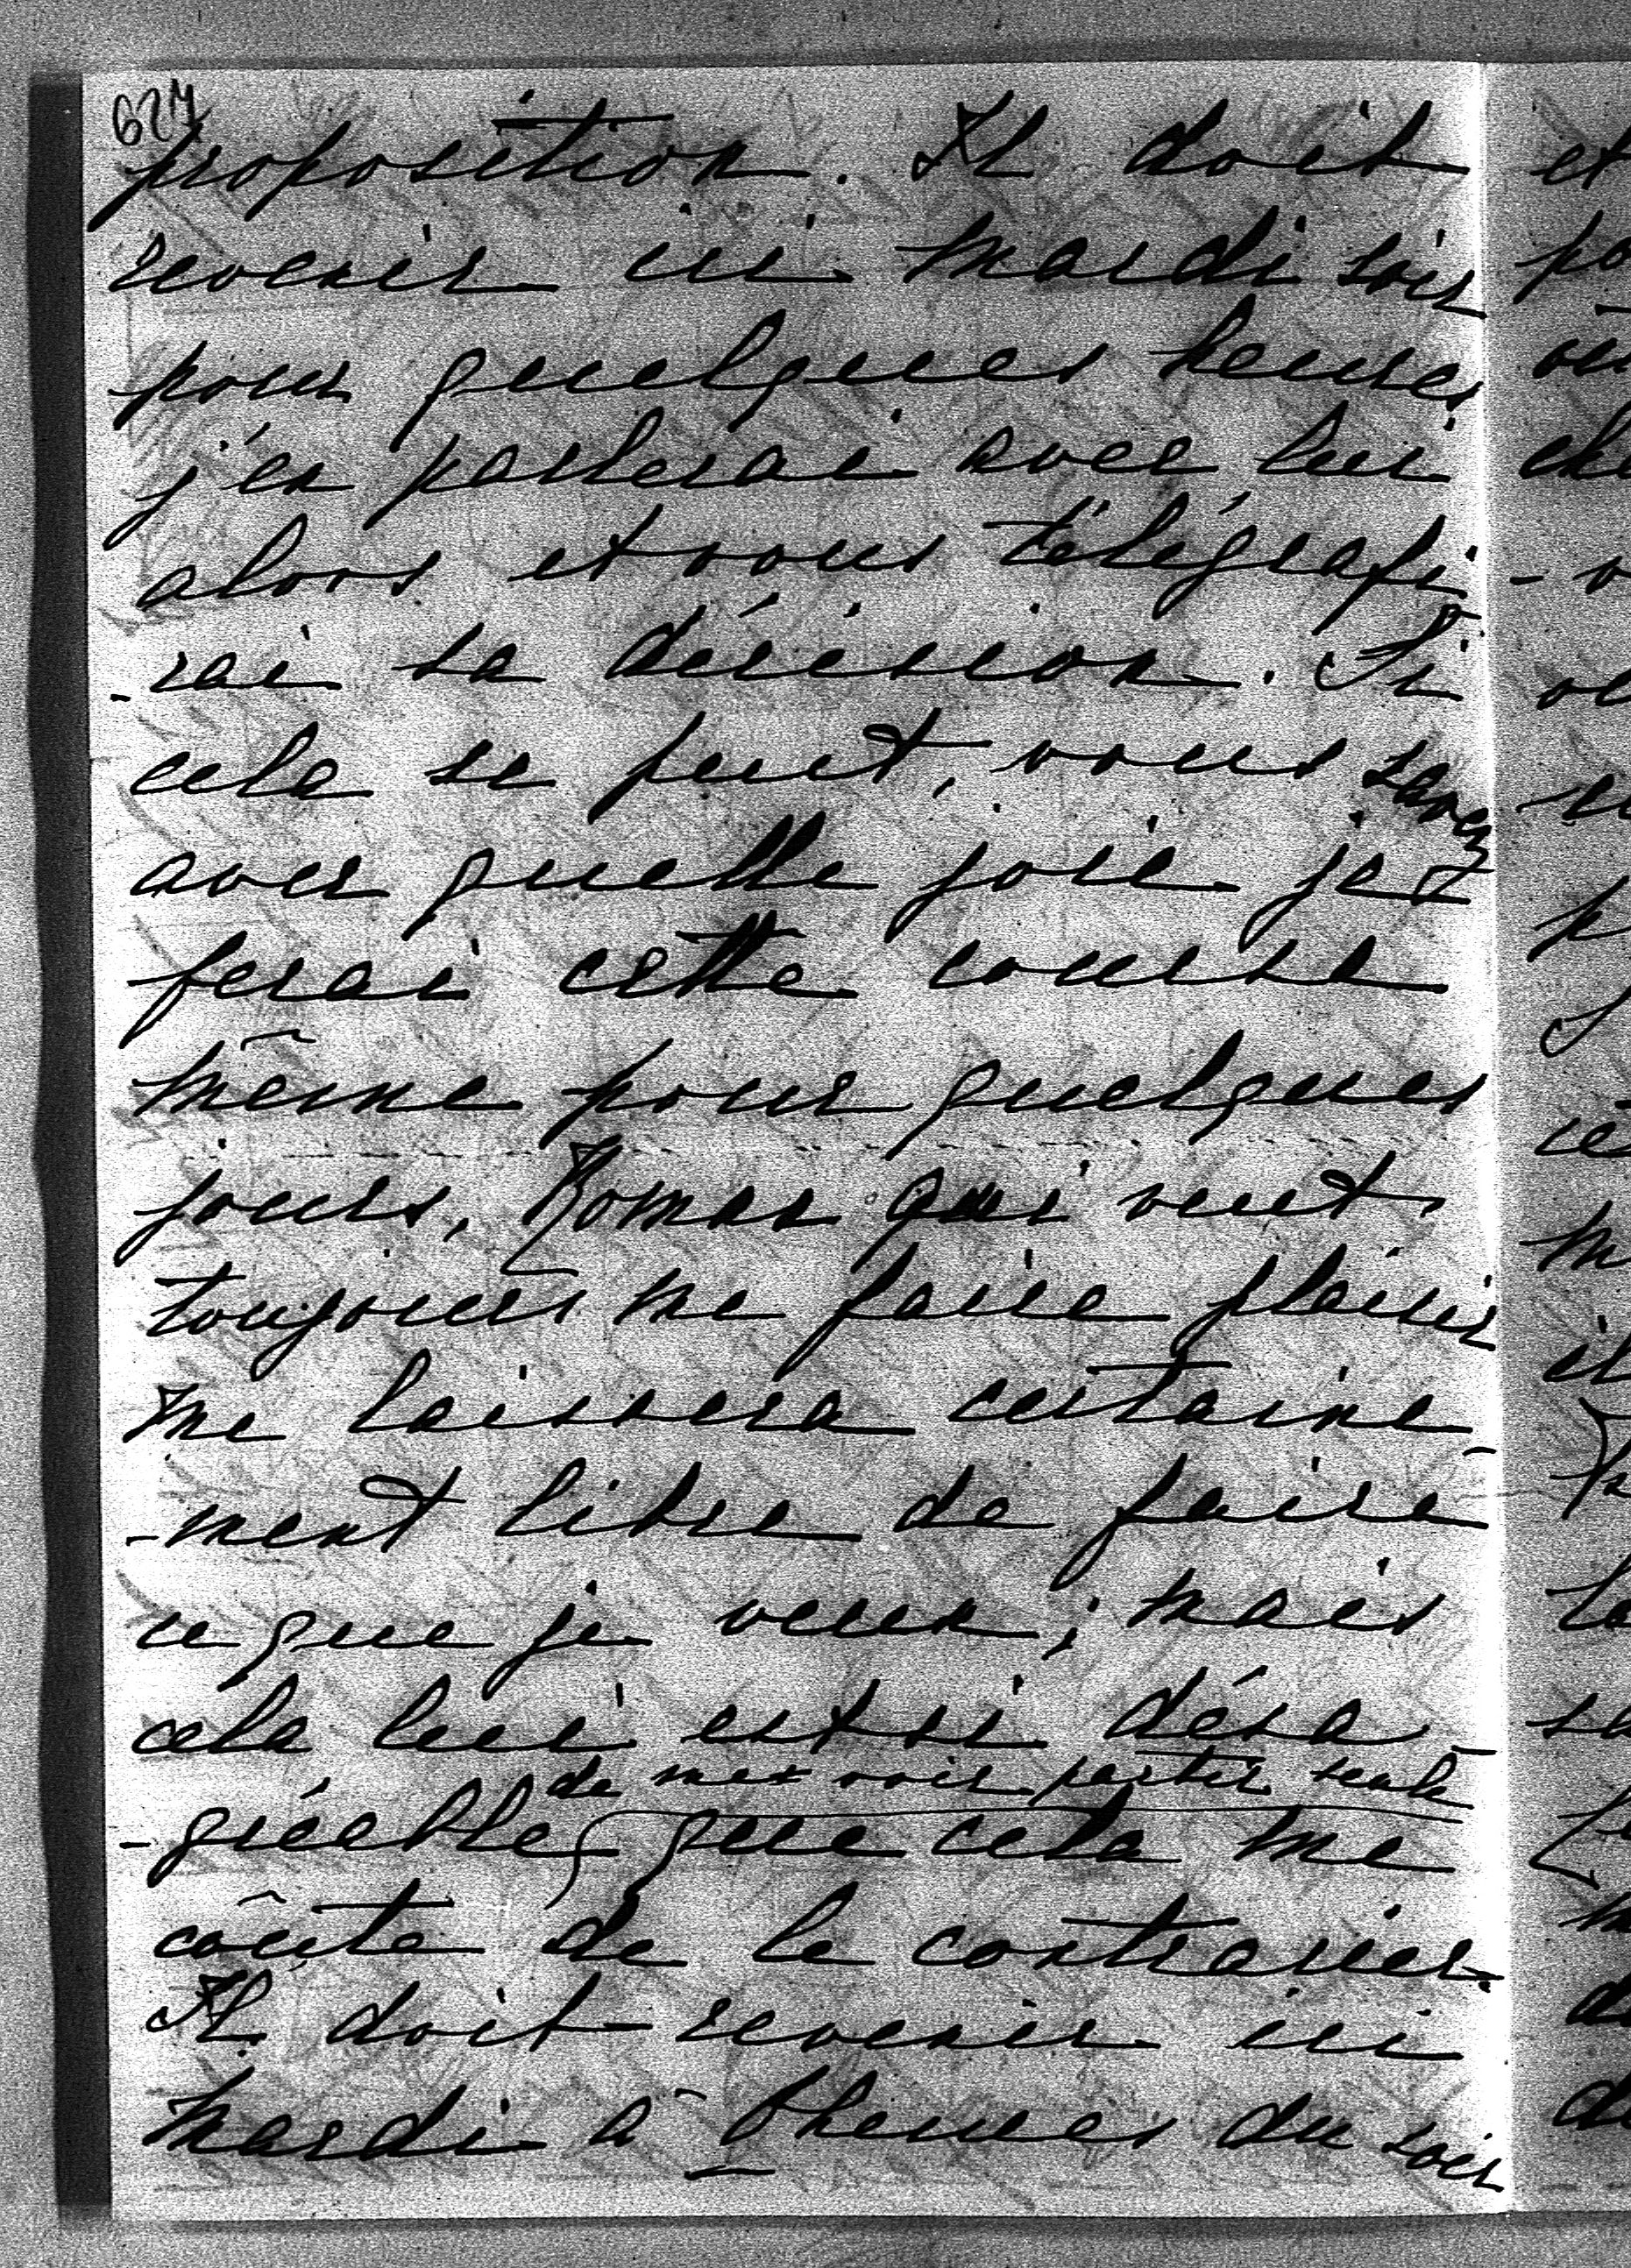 627
proposition. Il doit
revenir ici mardi soir
pour quelques heures
j'en parlerai avec lui
alors et vous télégrafi
-rai sa décision. Si
cela se peut, vous savez
avec quelle joie je
ferai cette course
même pour quelques
jours, Roman qui veut
toujours me faire plaisir
me laissera certaine
-ment libre de faire
ce que je veux; mais
cela lui est si désa-
de me voir partir seule
-gréable que cela me
coûte de le contrarier.
Il doit revenir ici
mardi à 6 heures du soir